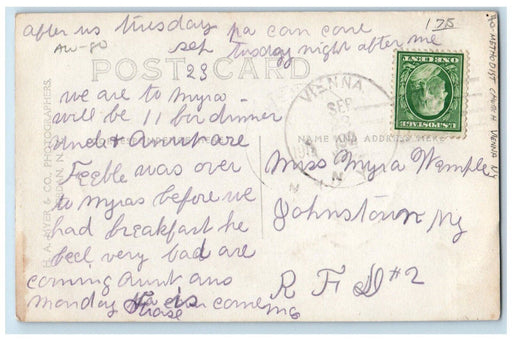 after us tuesday pa can come
sep tusdgy night after me
175
AW-80
POST CARD
23
VIENNA
SEP
N
ONE CENT
U.S. POSTAGE
METHODIST CHURCH VIENNA NY
we are to Myras
will be 11 for dinner
and Aunt are
NAME AND ADDRESS HERE
Feeble was over
to Myras before we
had breakfast he
feel very bad are
coming Aunt and
Monday Pa is come
Miss Myra Wemple
Johnstown Ny
R F D #2
& CO., PHOTOGRAPHERS,